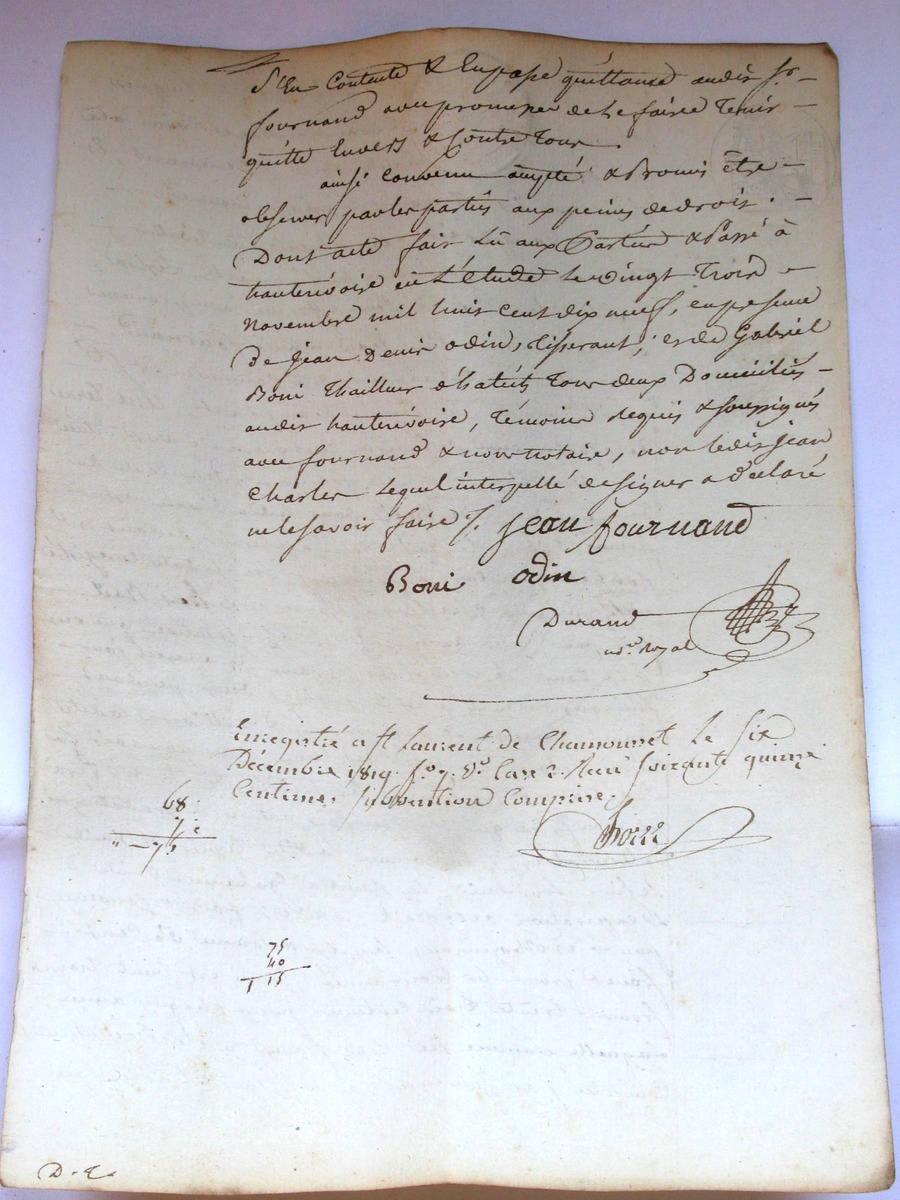 S'en Contente & En passe quittance audit Sr.
fournand avec promesse de Le faire Tenir
quitte Envers & Contre Tous.
ainsi convenu arreté & Promis être
observer par les partis aux peines de droit.
Dont acte fait Lû aux Parties & Passé à
hauterivoire en L'étude Le Vingt Trois
novembre mil huit cent dix neuf, en presence
De Jean Denis odin, tisserant, et de Gabriel
Boni Thailleur d'habits Tous deux Domiciliés
audit hauterivoire, Témoins Requis & soussignés
avec fournand & nous notaire, non ledit Jean
Charles Lequel interpellé de signer a déclaré
ne le savoir faire %. jean fournand
Boni odin
Durand
nore. Royal
Enregistré a St Laurent de Chamousset Le Six
Décembre 1819. fo. 9. Vo. Case 2. Recu Soixante quinze
Centimes Subvention Comprise.
68
7
" - 75
75
40
1 15